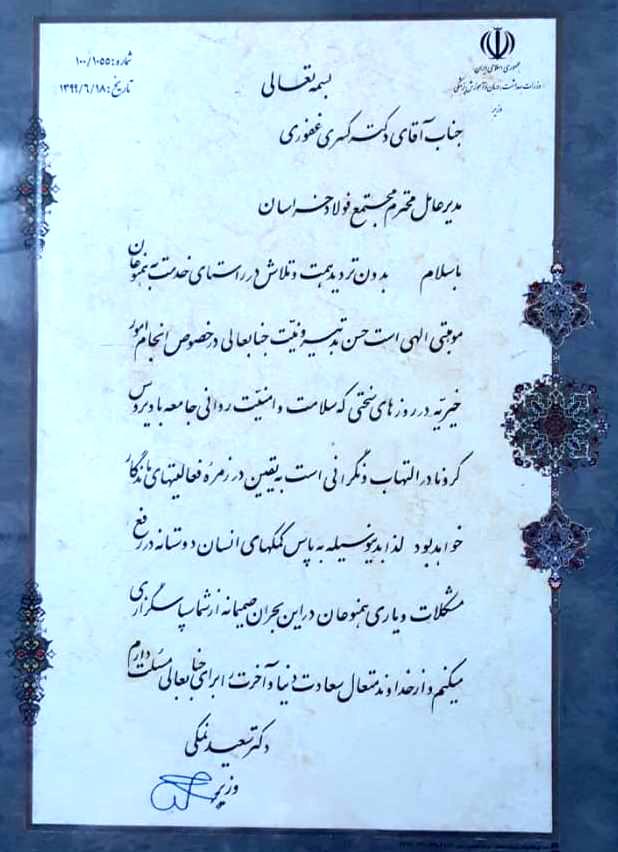 جمهوری اسلامی ایران
وزارت بهداشت، درمان و آموزش پزشکی
وزیر
شماره: ۱۰۰/۱۰۵۵
تاریخ: ۱۳۹۹/۶/۱۸
بسمه تعالی
جناب آقای دکتر کسری غفوری
مدیر عامل محترم مجتمع فولاد خراسان
با سلام بدون تردید همت و تلاش در راستای خدمت به همنوعان
موهبتی الهی است حسن تدبیر و نیّت جنابعالی در خصوص انجام امور
خیریّه در روزهای سختی که سلامت و امنیّت روانی جامعه با ویروس
کرونا در التهاب و نگرانی است به یقین در زمره فعالیتهای ماندگار
خواهد بود لذا بدینوسیله به پاس کمکهای انسان دوستانه در رفع
مشکلات و یاری همنوعان در این بحران صمیمانه از شما سپاسگزاری
میکنم و از خداوند متعال سعادت دنیا و آخرت را برای جنابعالی مسئلت دارم
دکتر سعید نمکی
وزیر